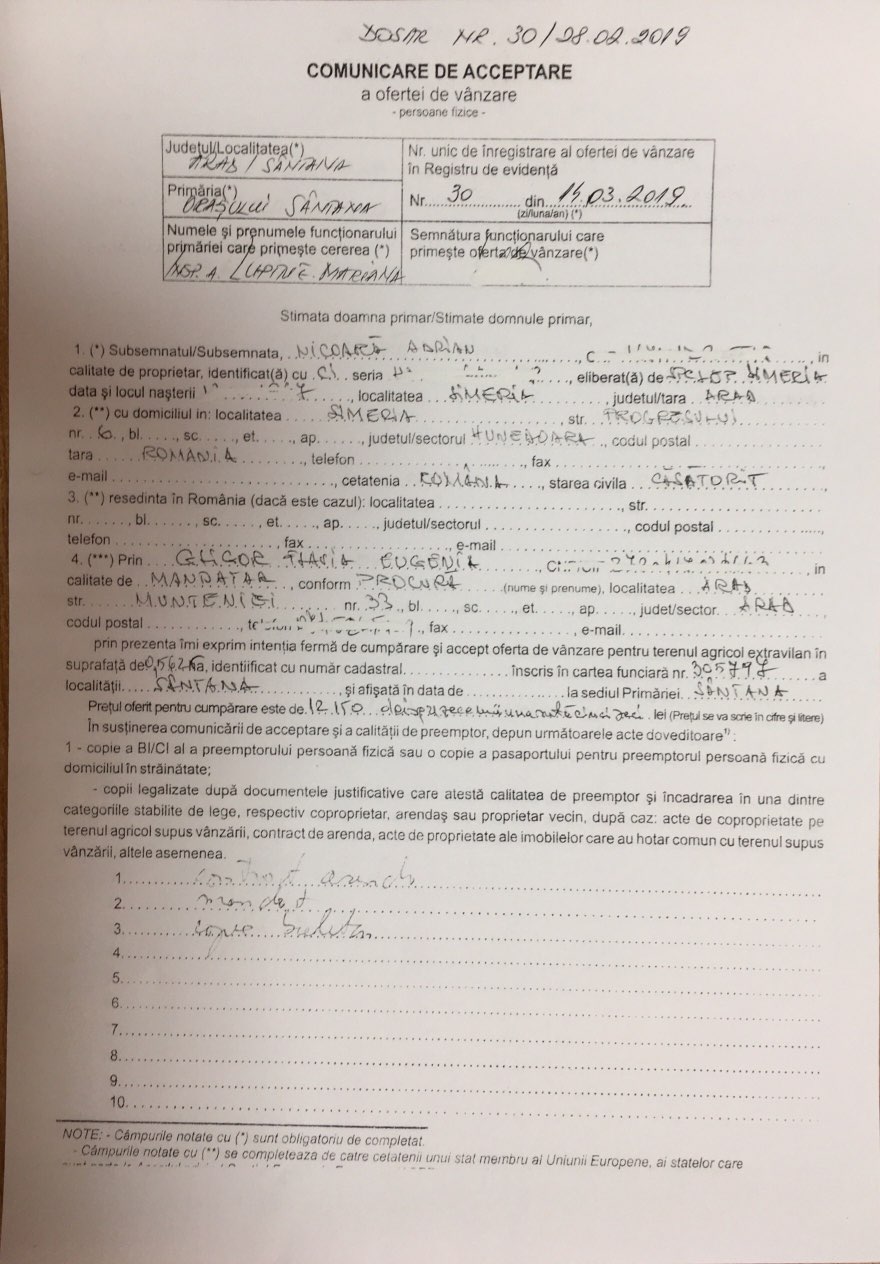 DOSAR NR. 30/28.02.2019
COMUNICARE DE ACCEPTARE
a ofertei de vânzare
- persoane fizice -
Judeţul/Localitatea(*)
ARAD / SÂNTANA
Nr. unic de înregistrare al ofertei de vânzare
în Registru de evidenţă
Nr. 30 din 14.03.2019
(zi/luna/an) (*)
Primăria(*)
ORAŞULUI SÂNTANA
Numele şi prenumele funcţionarului
primăriei care primeşte cererea (*)
INSP. A. LUPINE MARIANA
Semnătura funcţionarului care
primeşte oferta de vânzare(*)
Stimata doamna primar/Stimate domnule primar,
1. (*) Subsemnatul/Subsemnata, NICOARĂ ADRIAN, C, in
calitate de proprietar, identificat(ă) cu CI seria, eliberat(ă) de SPCLEP SIMERIA
data şi locul naşterii, localitatea SIMERIA, judeţul/tara ARAD
2. (**) cu domiciliul in: localitatea SIMERIA, str. PROGRESULUI
nr. 6, bl., sc., et., ap., judetul/sectorul HUNEDOARA, codul postal
tara ROMANIA, telefon, fax
e-mail, cetatenia ROMANA, starea civila CĂSĂTORIT,
3. (**) resedinta în România (dacă este cazul): localitatea, str.
nr., bl., sc., et., ap., judetul/sectorul, codul postal,
telefon, fax, e-mail
4. (***) Prin GLIGOR FLAVIA EUGENIA, in
calitate de MANDATAR, conform PROCURA (nume şi prenume), localitatea ARAD
str. MUNTENIEI nr. 33, bl., sc., et., ap., judet/sector ARAD
codul postal, fax, e-mail
prin prezenta îmi exprim intenţia fermă de cumpărare şi accept oferta de vânzare pentru terenul agricol extravilan în
suprafaţă de 0,562 ha, identiificat cu număr cadastral înscris în cartea funciară nr. 305797 a
localităţii SÂNTANA, şi afişată în data de la sediul Primăriei SÂNTANA
Preţul oferit pentru cumpărare este de 12.150 doisprezecemiiunasutăcincizeci lei (Preţul se va scrie în cifre şi litere)
În susţinerea comunicării de acceptare şi a calităţii de preemptor, depun următoarele acte doveditoare¹⁾ :
1 - copie a BI/CI al a preemptorului persoană fizică sau o copie a pasaportului pentru preemptorul persoană fizică cu
domiciliul în străinătate;
- copii legalizate după documentele justificative care atestă calitatea de preemptor şi încadrarea în una dintre
categoriile stabilite de lege, respectiv coproprietar, arendaş sau proprietar vecin, după caz: acte de coproprietate pe
terenul agricol supus vânzării, contract de arenda, acte de proprietate ale imobilelor care au hotar comun cu terenul supus
vânzării, altele asemenea.
1. contract arenda
2. mandat
3. copie buletin
4.
5.
6.
7.
8.
9.
10.
NOTE: - Câmpurile notate cu (*) sunt obligatoriu de completat.
- Câmpurile notate cu (**) se completeaza de catre cetatenii unui stat membru al Uniunii Europene, ai statelor care